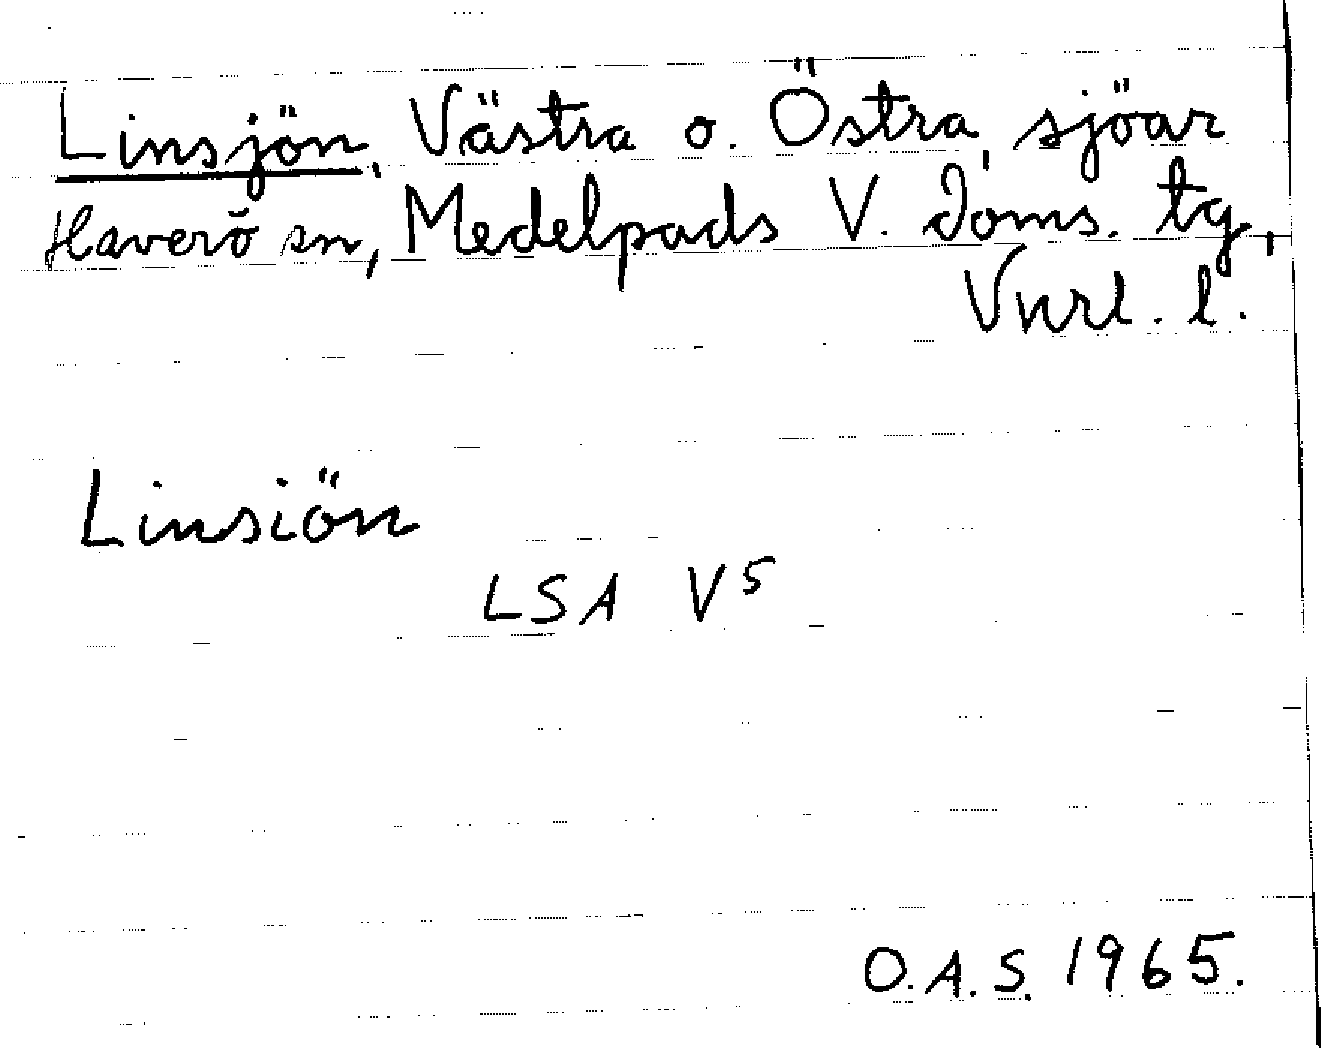 Linsjön, Västra o. Östra, sjöar
Haverö sn, Medelpads V. doms. tg,
Vnrl. l.
Linsiön
LSA V5
O.A.S. 1965.